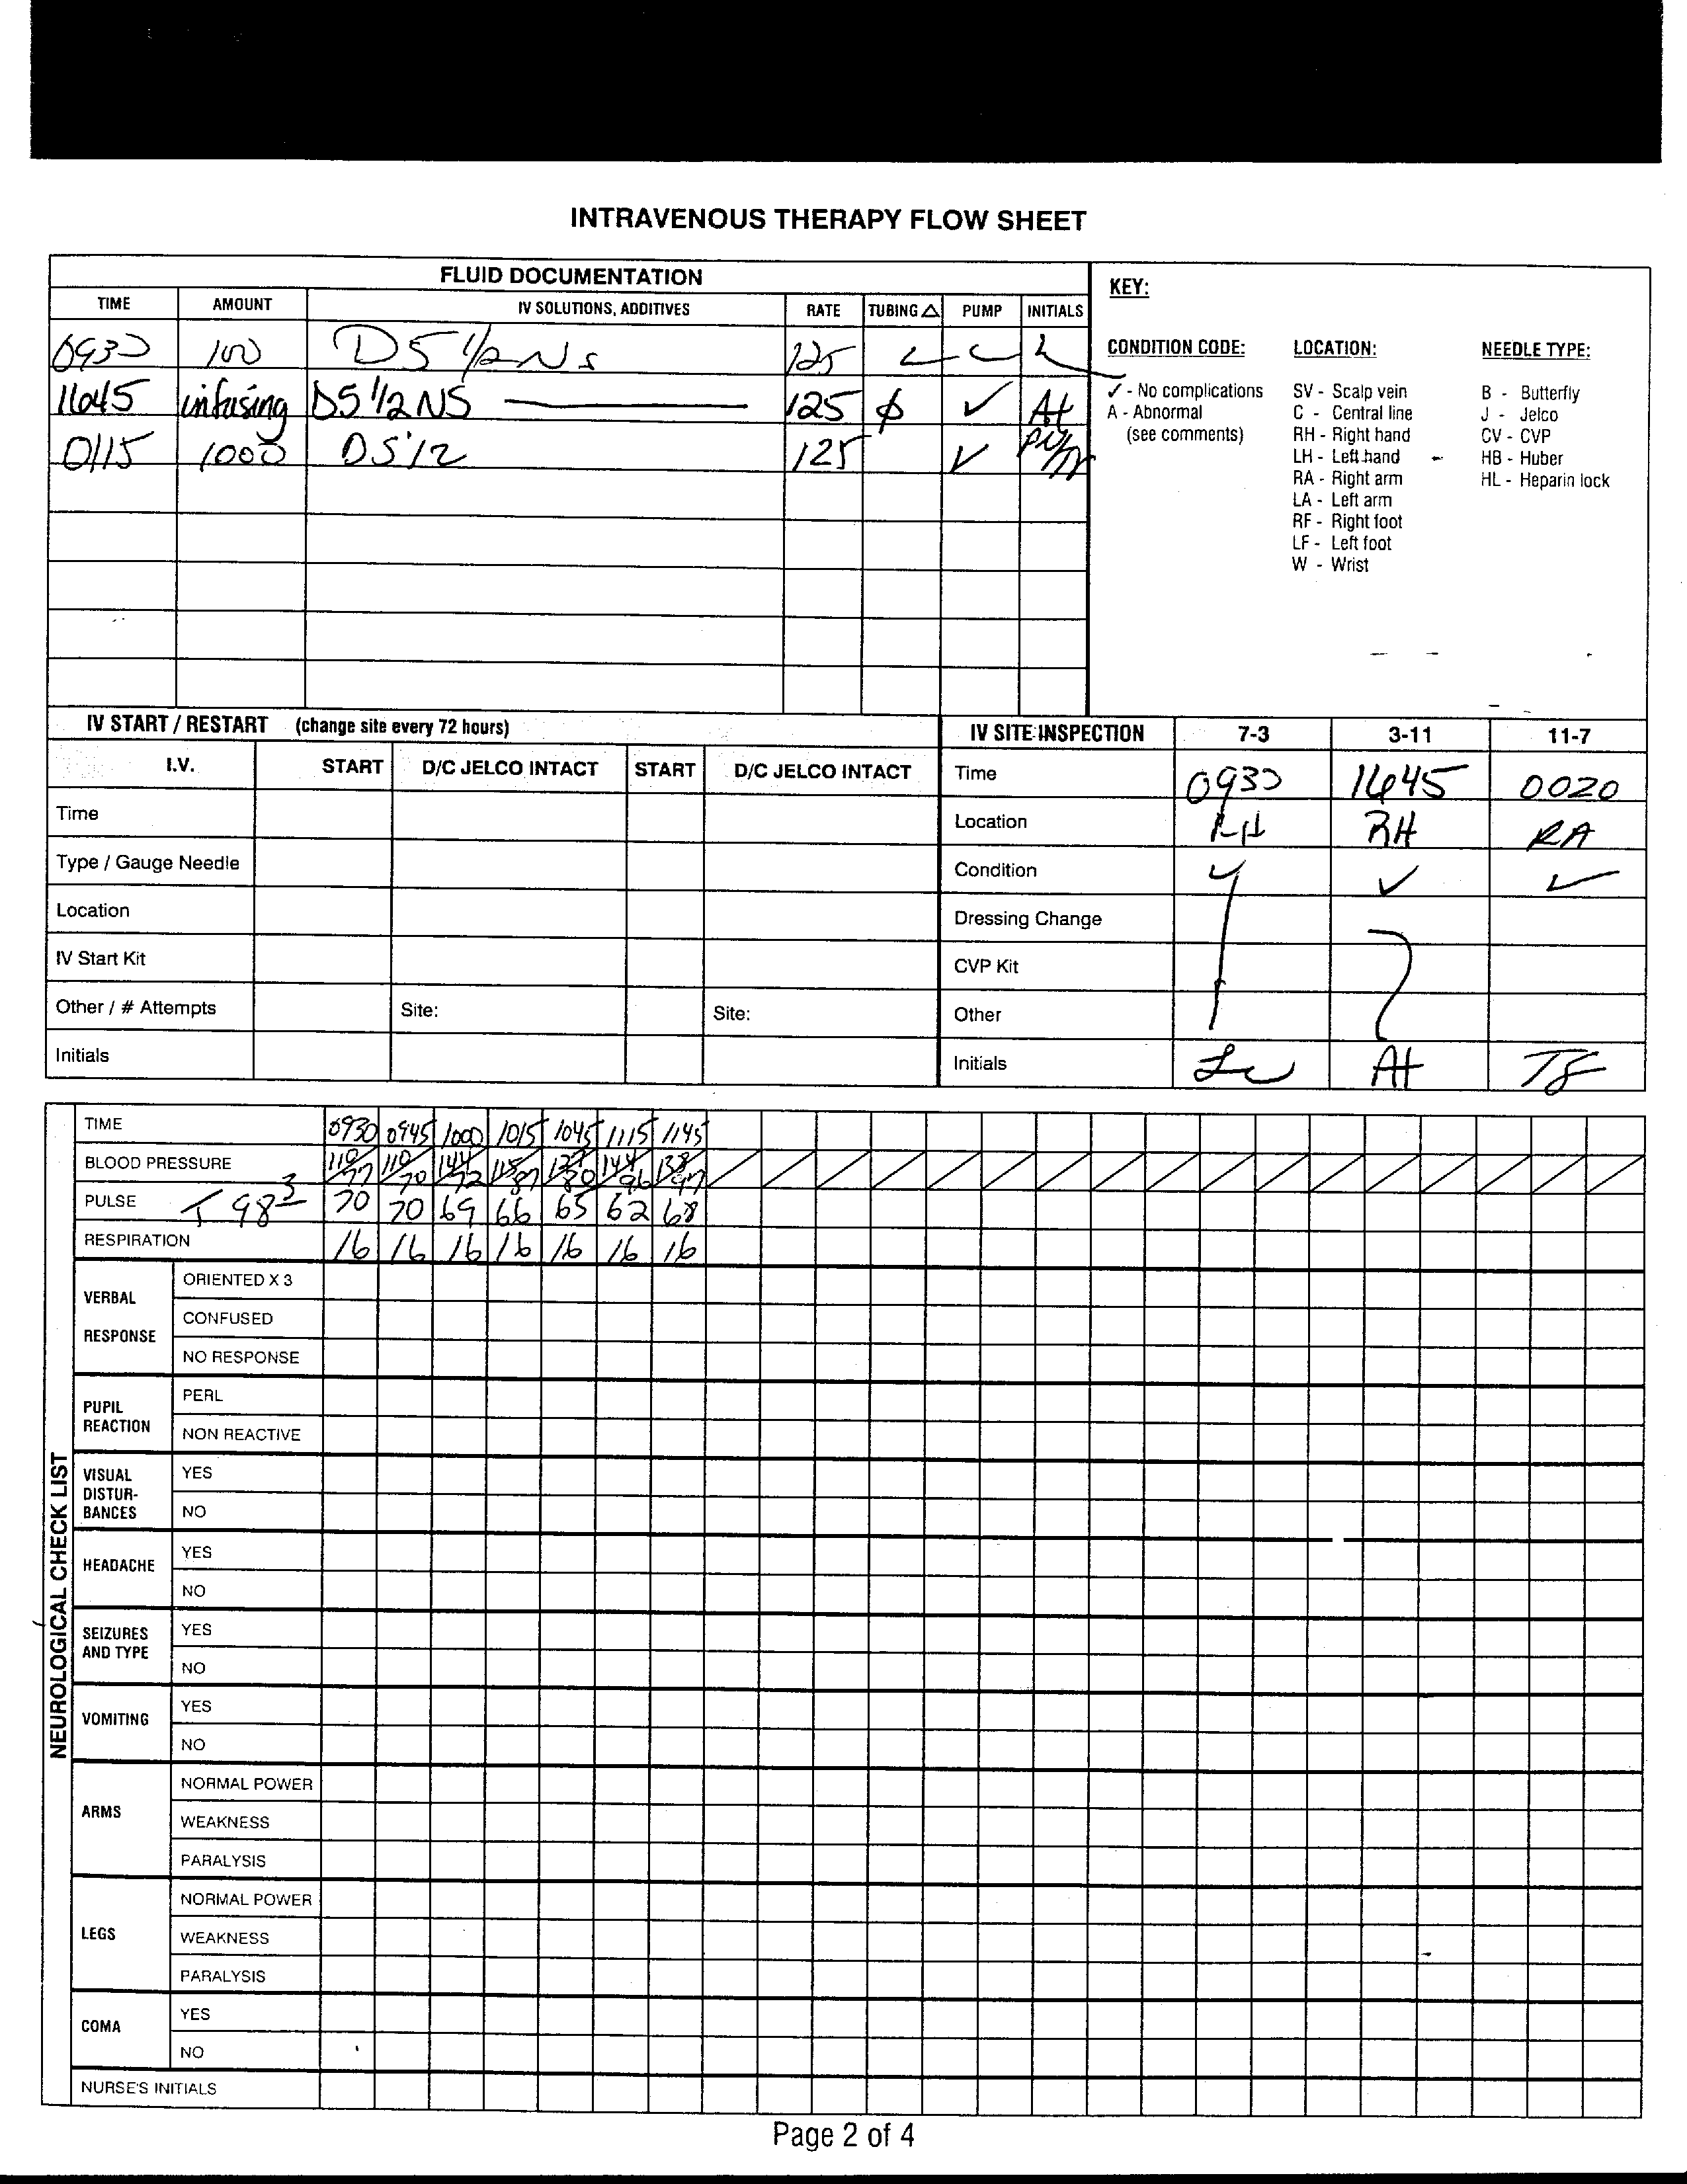 INTRAVENOUS THERAPY FLOW SHEET
FLUID DOCUMENTATION
TIME AMOUNT IV SOLUTIONS, ADDITIVES RATE TUBING △ PUMP INITIALS
0930 100 D5 1/2 NS 125
1645 infusing D5 1/2 NS 125 ϕ ✓ At
0115 1000 D5 1/2 125 ✓
KEY:
CONDITION CODE:
✓ - No complications
A - Abnormal
(see comments)
LOCATION:
SV - Scalp vein
C - Central line
RH - Right hand
LH - Left hand
RA - Right arm
LA - Left arm
RF - Right foot
LF - Left foot
W - Wrist
NEEDLE TYPE:
B - Butterfly
J - Jelco
CV - CVP
HB - Huber
HL - Heparin lock
IV START / RESTART (change site every 72 hours)
I.V. START D/C JELCO INTACT START D/C JELCO INTACT
Time
Type / Gauge Needle
Location
IV Start Kit
Other / # Attempts Site: Site:
Initials
IV SITE INSPECTION 7-3 3-11 11-7
Time 0930 1645 0020
Location RH RA
Condition ✓ ✓ ✓
Dressing Change
CVP Kit
Other
Initials At
NEUROLOGICAL CHECK LIST
TIME 0930 0945 1000 1015 1045 1115 1145
BLOOD PRESSURE 110/77 110/70 144/
PULSE T 98³ 70 70 69 66 65 62 68
RESPIRATION 16 16 16 16 16 16 16
VERBAL RESPONSE
ORIENTED X 3
CONFUSED
NO RESPONSE
PUPIL REACTION
PERL
NON REACTIVE
VISUAL DISTUR-
BANCES
YES
NO
HEADACHE
YES
NO
SEIZURES AND TYPE
YES
NO
VOMITING
YES
NO
ARMS
NORMAL POWER
WEAKNESS
PARALYSIS
LEGS
NORMAL POWER
WEAKNESS
PARALYSIS
COMA
YES
NO
NURSE'S INITIALS
Page 2 of 4